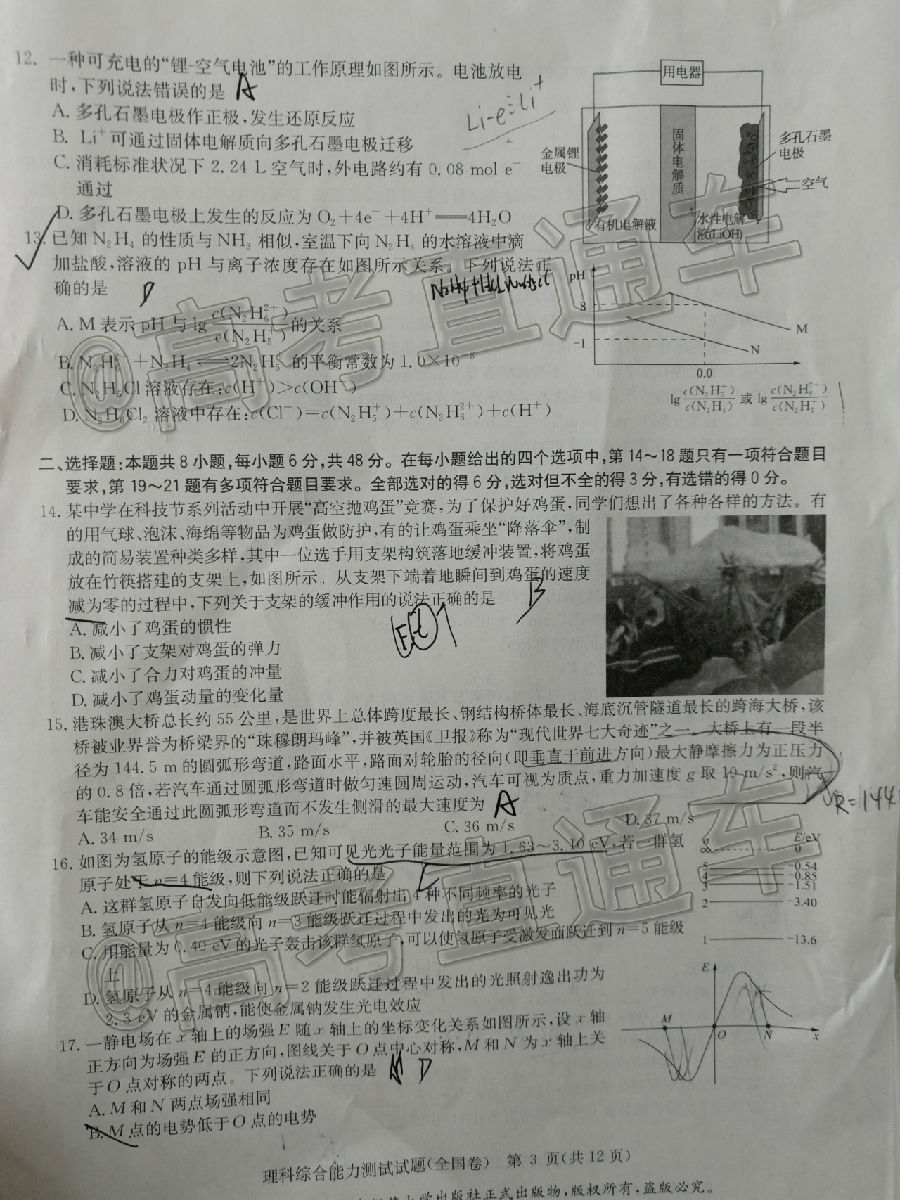 12. 一种可充电的“锂-空气电池”的工作原理如图所示。电池放电
时,下列说法错误的是 A
A. 多孔石墨电极作正极,发生还原反应
B. Li⁺可通过固体电解质向多孔石墨电极迁移
C. 消耗标准状况下 2.24 L 空气时,外电路约有 0.08 mol e⁻
通过
D. 多孔石墨电极上发生的反应为 O₂+4e⁻+4H⁺══4H₂O
Li-e⁻=Li⁺
用电器
金属锂
电极
固体电解质
多孔石墨
电极
空气
有机电解液
水性电解
液(LiOH)
13. 已知 N₂H₄ 的性质与 NH₃ 相似,室温下向 N₂H₄ 的水溶液中滴
加盐酸,溶液的 pH 与离子浓度存在如图所示关系。下列说法正
确的是 D
A. M 表示 pH 与 lg c(N₂H₆²⁺)/c(N₂H₅⁺) 的关系
B. N₂H₆²⁺+N₂H₄⇌2N₂H₅⁺ 的平衡常数为 1.0×10⁻⁸
C. N₂H₅Cl 溶液存在:c(H⁺)>c(OH⁻)
D. N₂H₆Cl₂ 溶液中存在:c(Cl⁻)=c(N₂H₅⁺)+c(N₂H₆²⁺)+c(H⁺)
pH
8
-1
M
N
0.0
lg c(N₂H₅⁺)/c(N₂H₄) 或 lg c(N₂H₆²⁺)/c(N₂H₅⁺)
二、选择题:本题共 8 小题,每小题 6 分,共 48 分。在每小题给出的四个选项中,第 14～18 题只有一项符合题目
要求,第 19～21 题有多项符合题目要求。全部选对的得 6 分,选对但不全的得 3 分,有选错的得 0 分。
14. 某中学在科技节系列活动中开展“高空抛鸡蛋”竞赛,为了保护好鸡蛋,同学们想出了各种各样的方法。有
的用气球、泡沫、海绵等物品为鸡蛋做防护,有的让鸡蛋乘坐“降落伞”,制
成的简易装置种类多样,其中一位选手用支架构筑落地缓冲装置,将鸡蛋
放在竹筷搭建的支架上,如图所示。从支架下端着地瞬间到鸡蛋的速度
减为零的过程中,下列关于支架的缓冲作用的说法正确的是 B
A. 减小了鸡蛋的惯性
B. 减小了支架对鸡蛋的弹力
C. 减小了合力对鸡蛋的冲量
D. 减小了鸡蛋动量的变化量
15. 港珠澳大桥总长约 55 公里,是世界上总体跨度最长、钢结构桥体最长、海底沉管隧道最长的跨海大桥,该
桥被业界誉为桥梁界的“珠穆朗玛峰”,并被英国《卫报》称为“现代世界七大奇迹”之一。大桥上有一段半
径为 144.5 m 的圆弧形弯道,路面水平,路面对轮胎的径向(即垂直于前进方向)最大静摩擦力为正压力
的 0.8 倍,若汽车通过圆弧形弯道时做匀速圆周运动,汽车可视为质点,重力加速度 g 取 10 m/s²,则汽
车能安全通过此圆弧形弯道而不发生侧滑的最大速度为 A
A. 34 m/s B. 35 m/s C. 36 m/s D. 37 m/s
16. 如图为氢原子的能级示意图,已知可见光光子能量范围为 1.63～3.10 eV,若一群氢
原子处于 n=4 能级,则下列说法正确的是
A. 这群氢原子自发向低能级跃迁时能辐射出 4 种不同频率的光子
B. 氢原子从 n=4 能级向 n=3 能级跃迁过程中发出的光为可见光
C. 用能量为 0.40 eV 的光子轰击该群氢原子,可以使氢原子受激发而跃迁到 n=5 能级
上
D. 氢原子从 n=4 能级向 n=2 能级跃迁过程中发出的光照射逸出功为
2.3 eV 的金属钠,能使金属钠发生光电效应
n E/eV
∞ 0
5 -0.54
4 -0.85
3 -1.51
2 -3.40
1 -13.6
17. 一静电场在 x 轴上的场强 E 随 x 轴上的坐标变化关系如图所示,设 x 轴
正方向为场强 E 的正方向,图线关于 O 点中心对称,M 和 N 为 x 轴上关
于 O 点对称的两点。下列说法正确的是 D
A. M 和 N 两点场强相同
B. M 点的电势低于 O 点的电势
E
M
O
N
x
理科综合能力测试试题(全国卷) 第 3 页(共 12 页)
大学出版社正式出版物,版权所有,盗版必究。
@高考直通车
@高考直通车